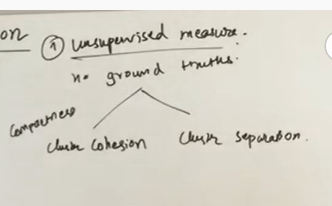 on
① Unsupervised measure.
no ground truths.
Compactness
Cluster Cohesion Cluster Separation.